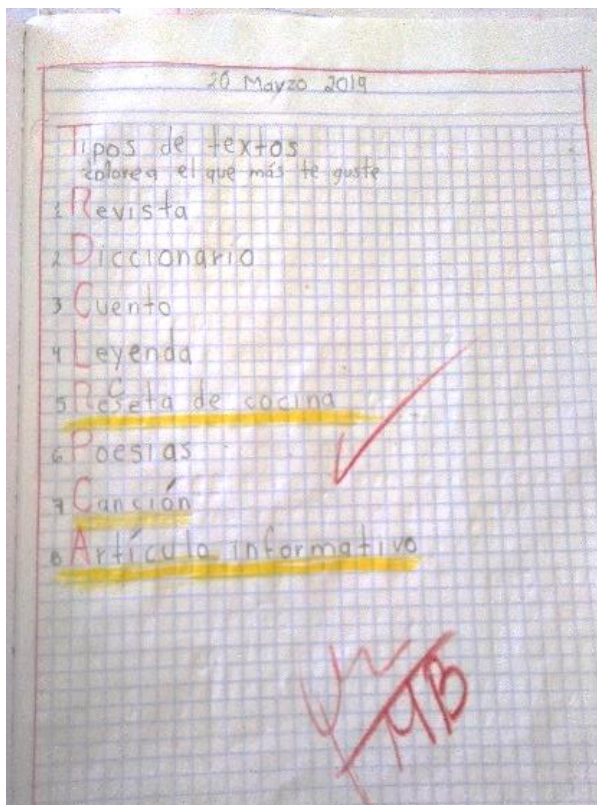 20 Marzo 2019
Tipos de textos
colorea el que más te guste
1 Revista
2 Diccionario
3 Cuento
4 Leyenda
5 Reseta de cocina
6 Poesias
7 Canción
8 Artículo informativo
MB